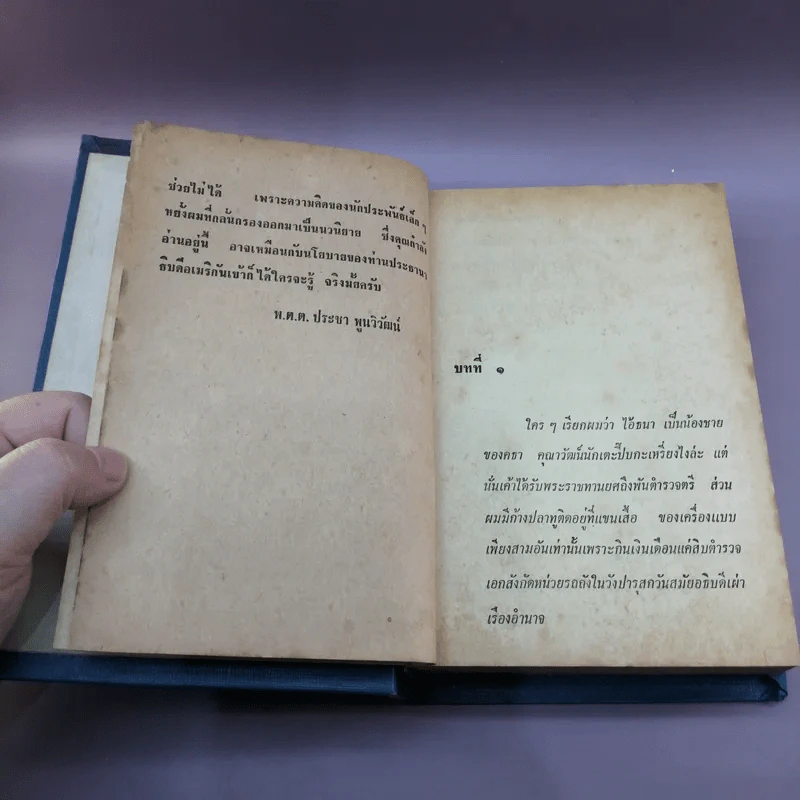 ช่วยไม่ได้ เพราะความคิดของนักประพันธ์เล็ก ๆ
หยั่งผมที่กลั่นกรองออกมาเป็นนวนิยาย ซึ่งคุณกำลัง
อ่านอยู่นี้ อาจเหมือนกับนโยบายของท่านประธานา
ธิบดีอเมริกันเข้าก็ได้ใครจะรู้ จริงมั้ยครับ
พ.ต.ต. ประชา พูนวิวัฒน์
บทที่ ๑
ใคร ๆ เรียกผมว่า ไอ้ธนา เป็นน้องชาย
ของคธา คุณาวัฒน์นักเตะปี๊บกะเหรี่ยงไงล่ะ แต่
นั่นเค้าได้รับพระราชทานยศถึงพันตำรวจตรี ส่วน
ผมมีก้างปลาทูติดอยู่ที่แขนเสื้อ ของเครื่องแบบ
เพียงสามอันเท่านั้นเพราะกินเงินเดือนแค่สิบตำรวจ
เอกสังกัดหน่วยรถถังในวังปารุสกวันสมัยอธิบดีเผ่า
เรืองอำนาจ